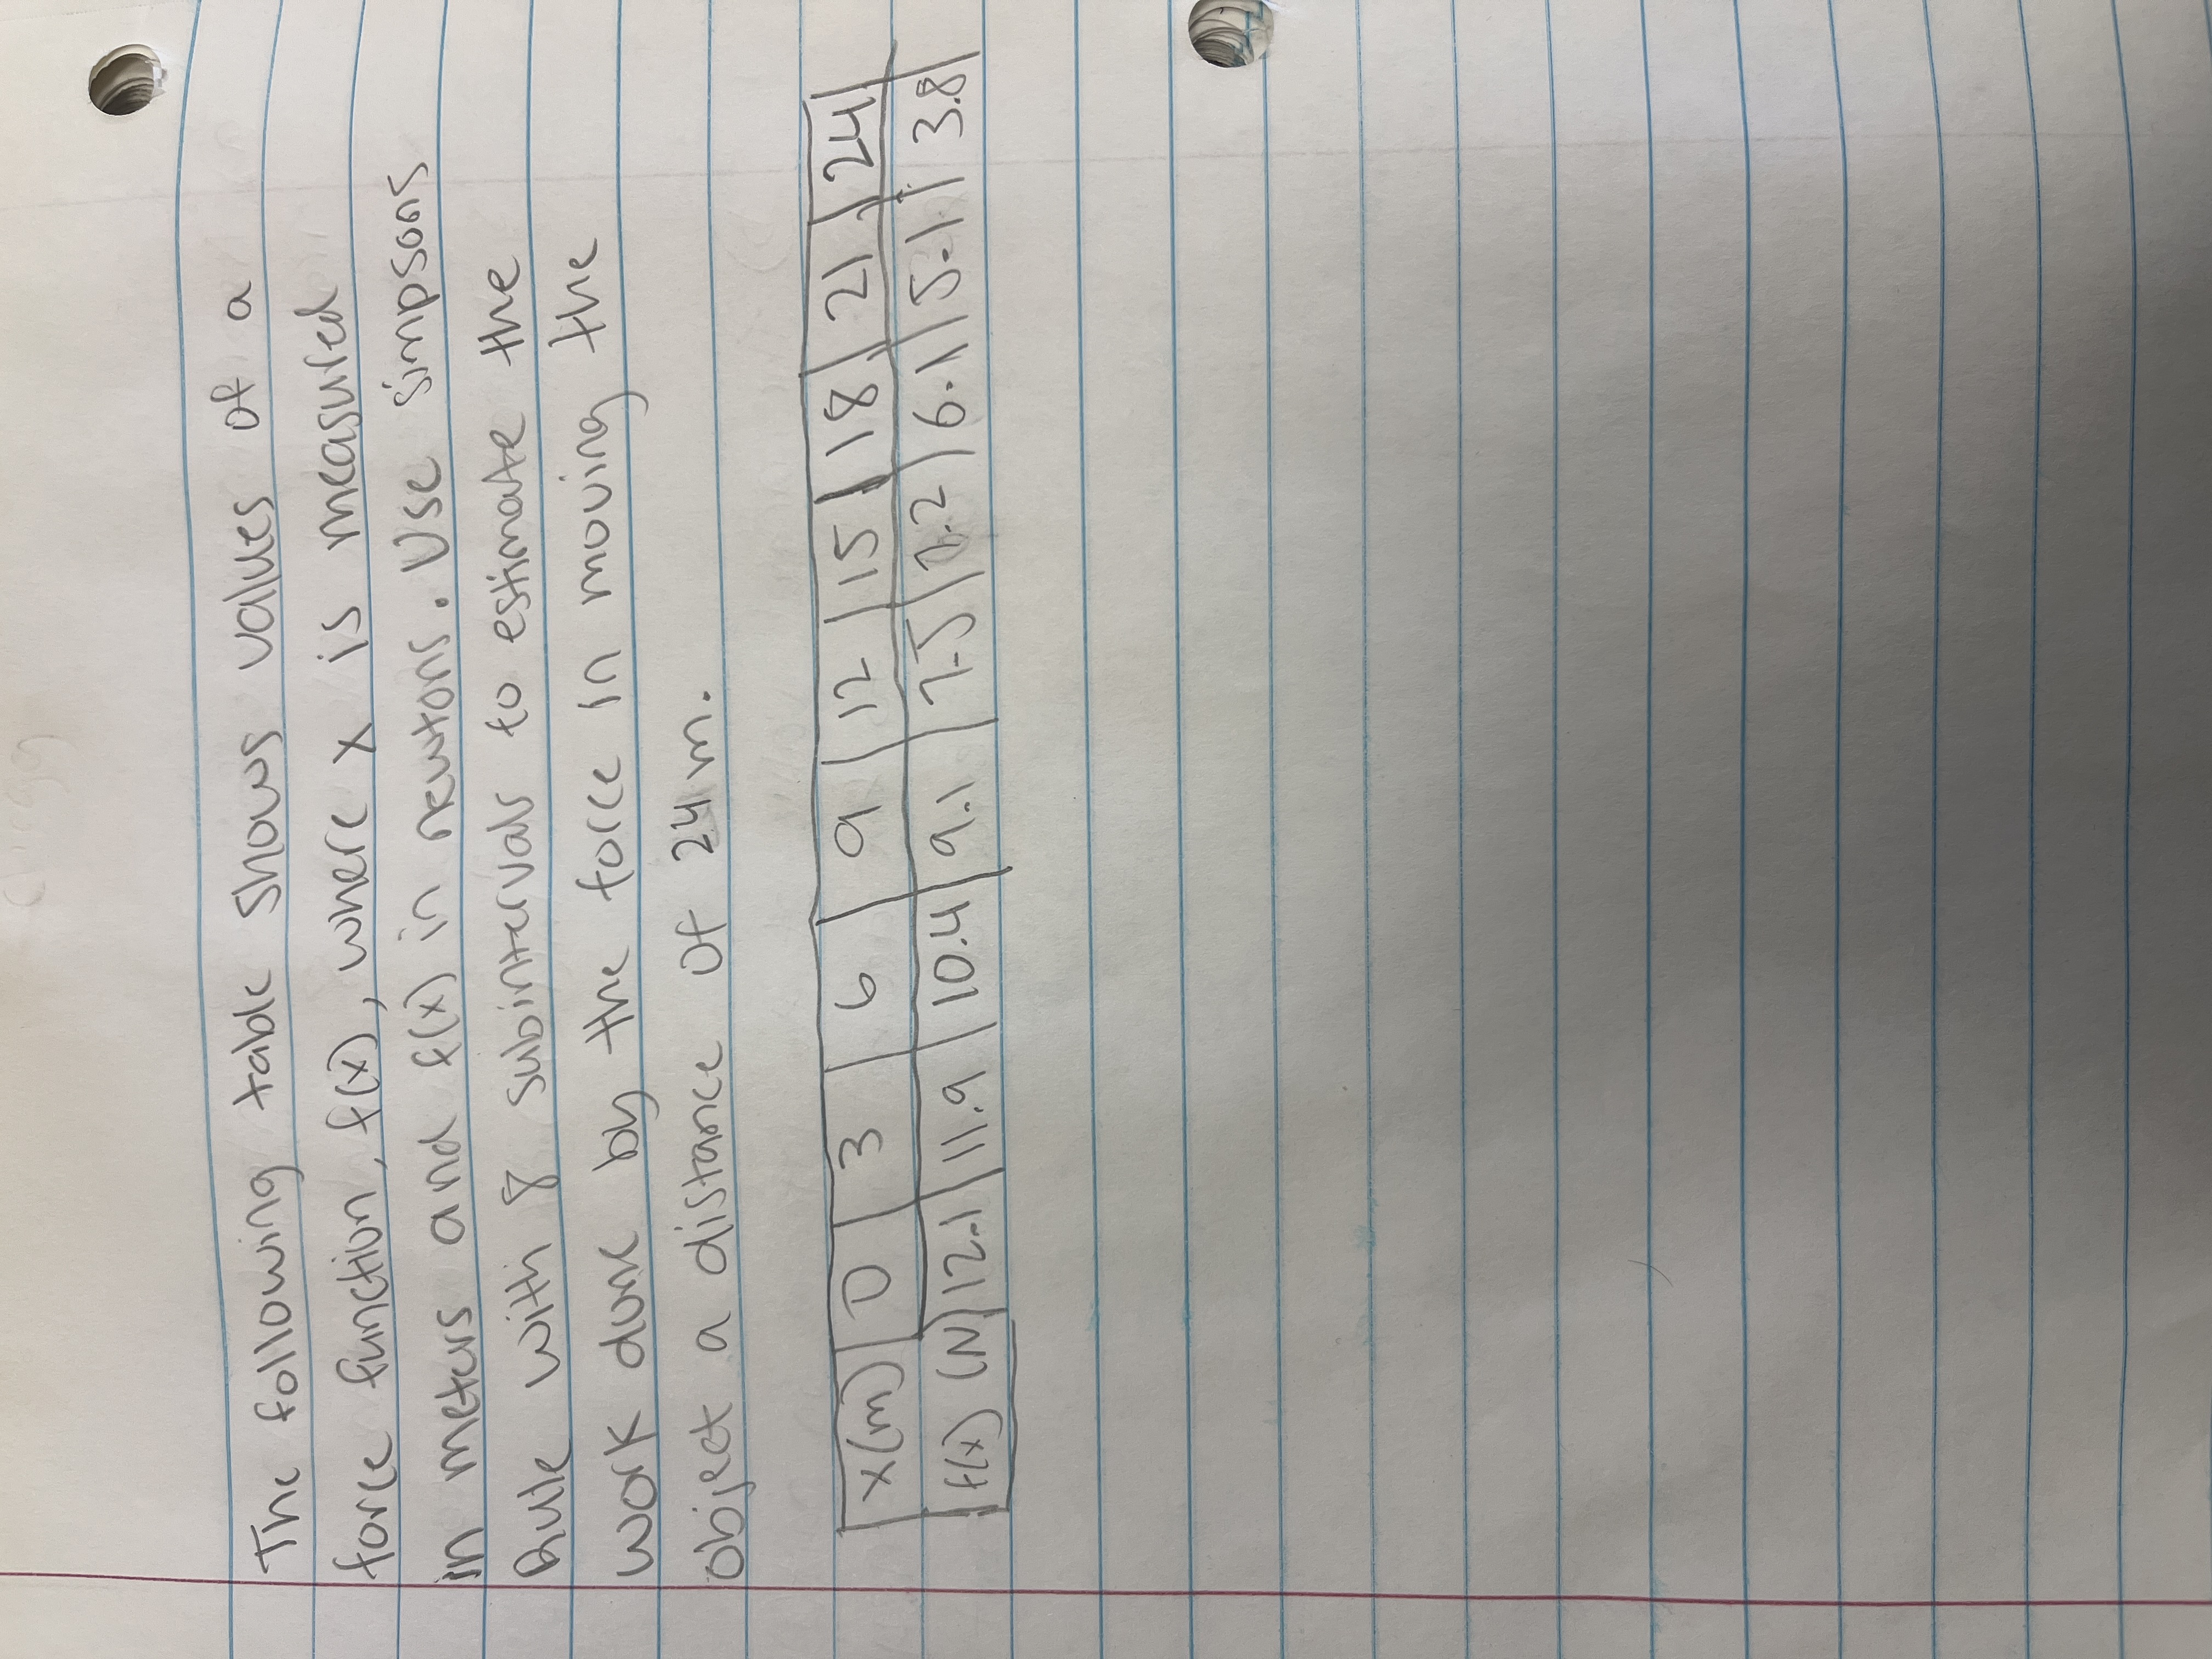 The following table shows values of a
force function, f(x), where x is measured
in meters and f(x) in newtons. Use simpsons
Rule with 8 subintervals to estimate the
work done by the force in moving the
object a distance of 24 m.
x(m) 0 3 6 9 12 15 18 21 24
f(x) (N) 12.1 11.9 10.4 9.1 7.5 7.2 6.1 5.1 3.8